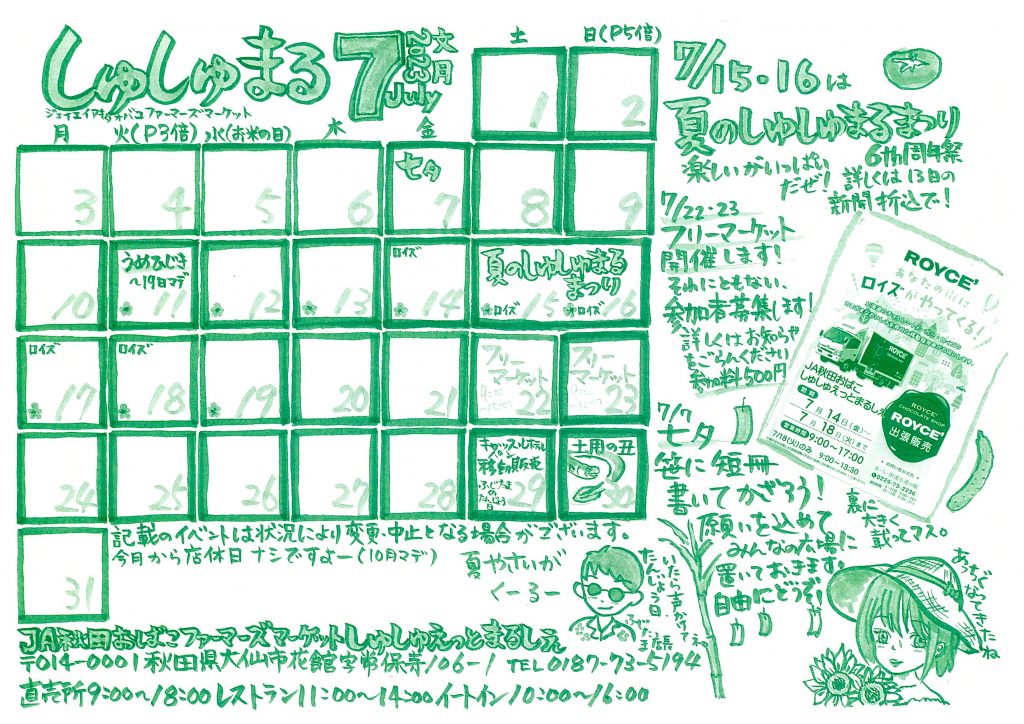 しゅしゅまる
7
文月
2023
July
ファーマーズマーケット
月 火(P3倍) 水(お米の日) 木 金 土 日(P5倍)
1 2
3 4 5 6 七夕 7 8 9
10
うめふじき
～19日マデ
11 12 13
ロイズ
14
夏のしゅしゅまる
まつり
ロイズ 15 ロイズ 16
ロイズ 17 ロイズ 18 19 20 21
フリー
マーケット
22
フリー
マーケット
23
24 25 26 27 28
移動販売
29
土用の丑
30
31
7/15・16は
夏のしゅしゅまるまつり
楽しいがいっぱい
だぜ!
6th周年祭
詳しくは13日の
新聞折込で!
7/22・23
フリーマーケット
開催します!
それにともない、
参加者募集します!
詳しくはお知らせ
ごらんください
参加料500円
ROYCE'
あなたの街に
ロイズがやってくる!
ROYCE'
JA秋田おばこ
しゅしゅえっとまるしぇ
7月14日(金)～
7月18日(火)まで
9:00～17:00
7/18(火)のみ 9:00～13:30
ROYCE'
CHOCOLATE SHOP
ROYCE'
出張販売
裏に
大きく
載ってマス。
7/7
七夕
笹に短冊
書いてかざろう!
願いを込めて
みんなの広場に
置いておきます。
自由にどうぞ!
記載のイベントは状況により変更・中止となる場合がございます。
今月から店休日ナシですよー(10月マデ)
夏やさいが
くーる-
いたら声かけて
たんじょう日
店長
あっちぐなってきたね
JA秋田おばこファーマーズマーケットしゅしゅえっとまるしぇ
〒014-0001 秋田県大仙市花館字常保寺106-1 TEL 0187-73-5194
直売所9:00～18:00 レストラン11:00～14:00 イートイン10:00～16:00